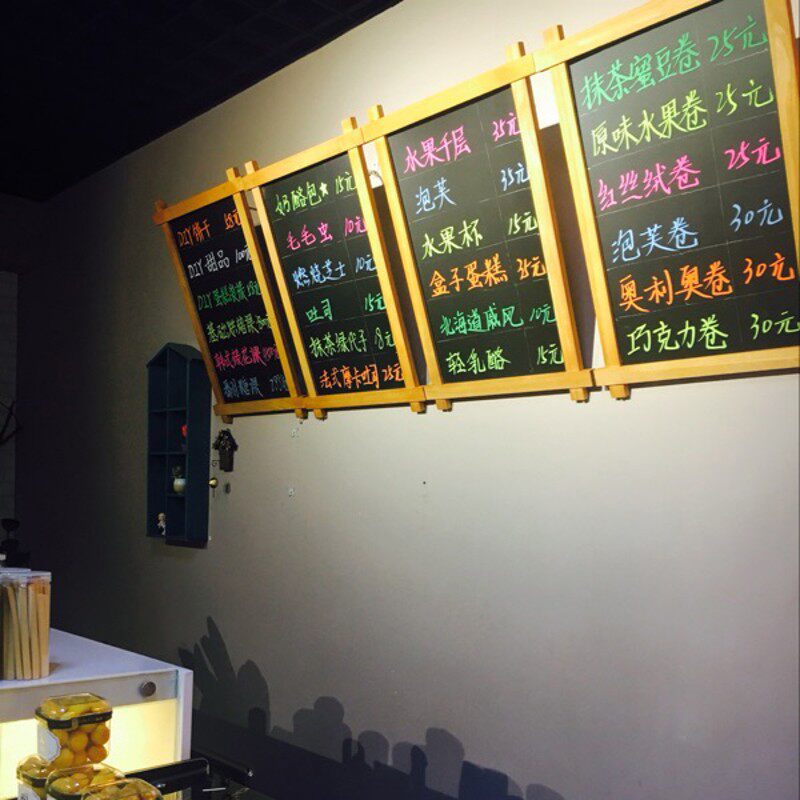 DIY饼干
DIY甜品 100元
DIY蛋糕
奶酪包★ 15元
毛毛虫 10元
燃烧芝士 10元
吐司 15元
抹茶绿代子 8元
法式摩卡吐司 25元
水果千层 35元
泡芙 35元
水果杯 15元
盒子蛋糕 35元
北海道戚风 10元
轻乳酪 15元
抹茶蜜豆卷 25元
原味水果卷 25元
红丝绒卷 25元
泡芙卷 30元
奥利奥卷 30元
巧克力卷 30元